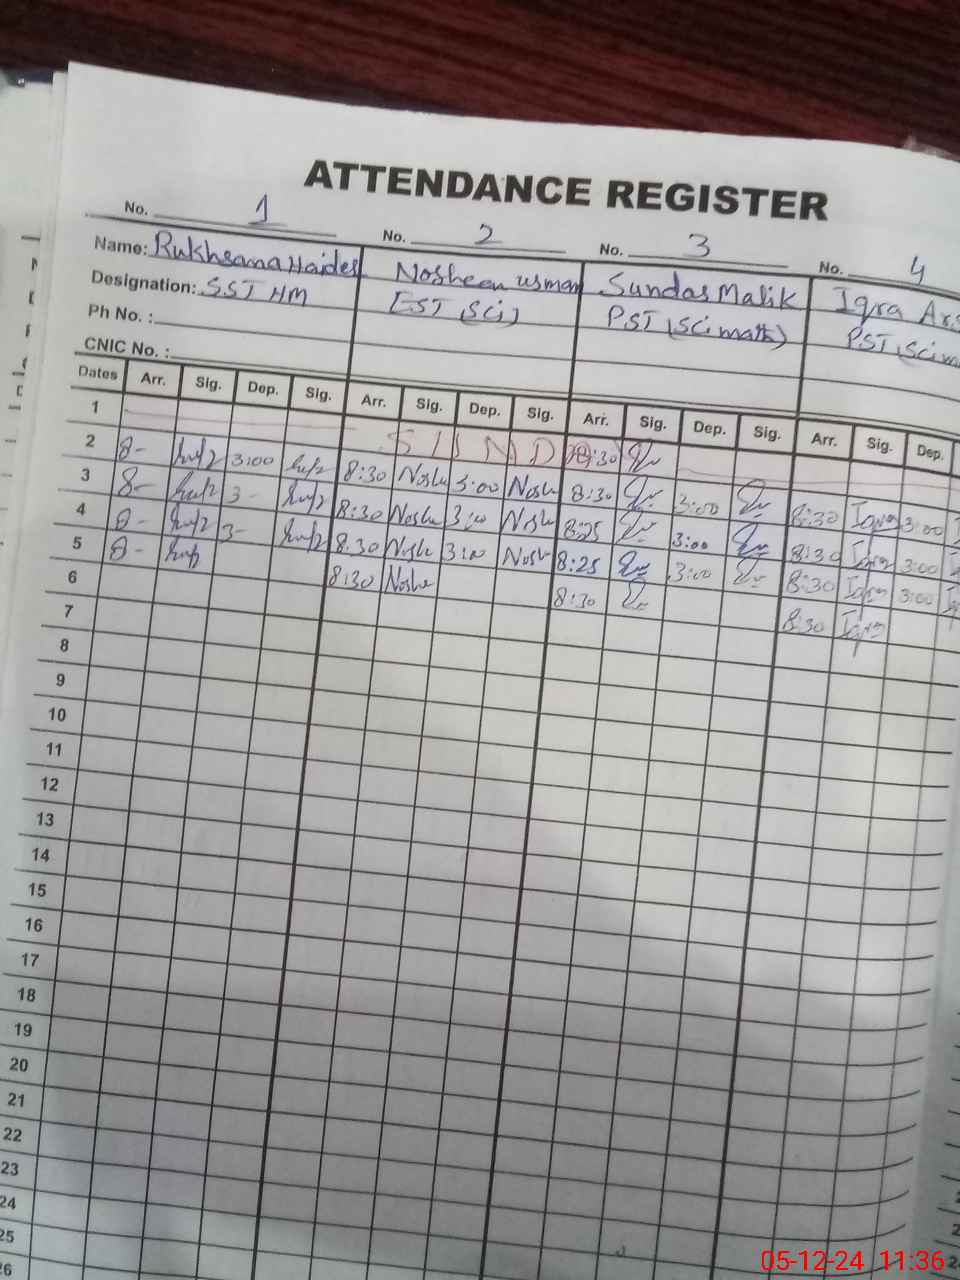 ATTENDANCE REGISTER
No. 1 No. 2 No. 3 No. 4
Name: Rukhsana Haider Nosheen Usman Sundas Malik Iqra
Designation: SST HM EST (Sci) PST (Sci math) PST (Sci
Ph No. :
CNIC No. :
Dates Arr. Sig. Dep. Sig. Arr. Sig. Dep. Sig. Arr. Sig. Dep. Sig. Arr. Sig. Dep.
1 S U N D
2 8- 3:00 8:30 Noshe 3:00 Nosh 8:30 3:00 8:30 Iqra 3:00
3 8- 3- 8:30 Noshe 3:00 Nosh 8:25 3:00 8:30 Iqra 3:00
4 8- 3- 8:30 Noshe 3:00 Nosh 8:25 3:00 8:30 Iqra 3:00
5 8- 8:30 Noshe 8:30 8:30 Iqra
6
7
8
9
10
11
12
13
14
15
16
17
18
19
20
21
22
23
24
25
26
05-12-24 11:36